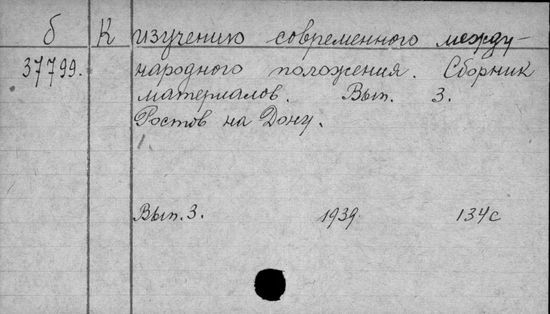 б К изучению современного между-
37799. народного положения. Сборник
материалов. Вып. 3.
Ростов на Дону.
1.
Вып. 3. 1939 134с